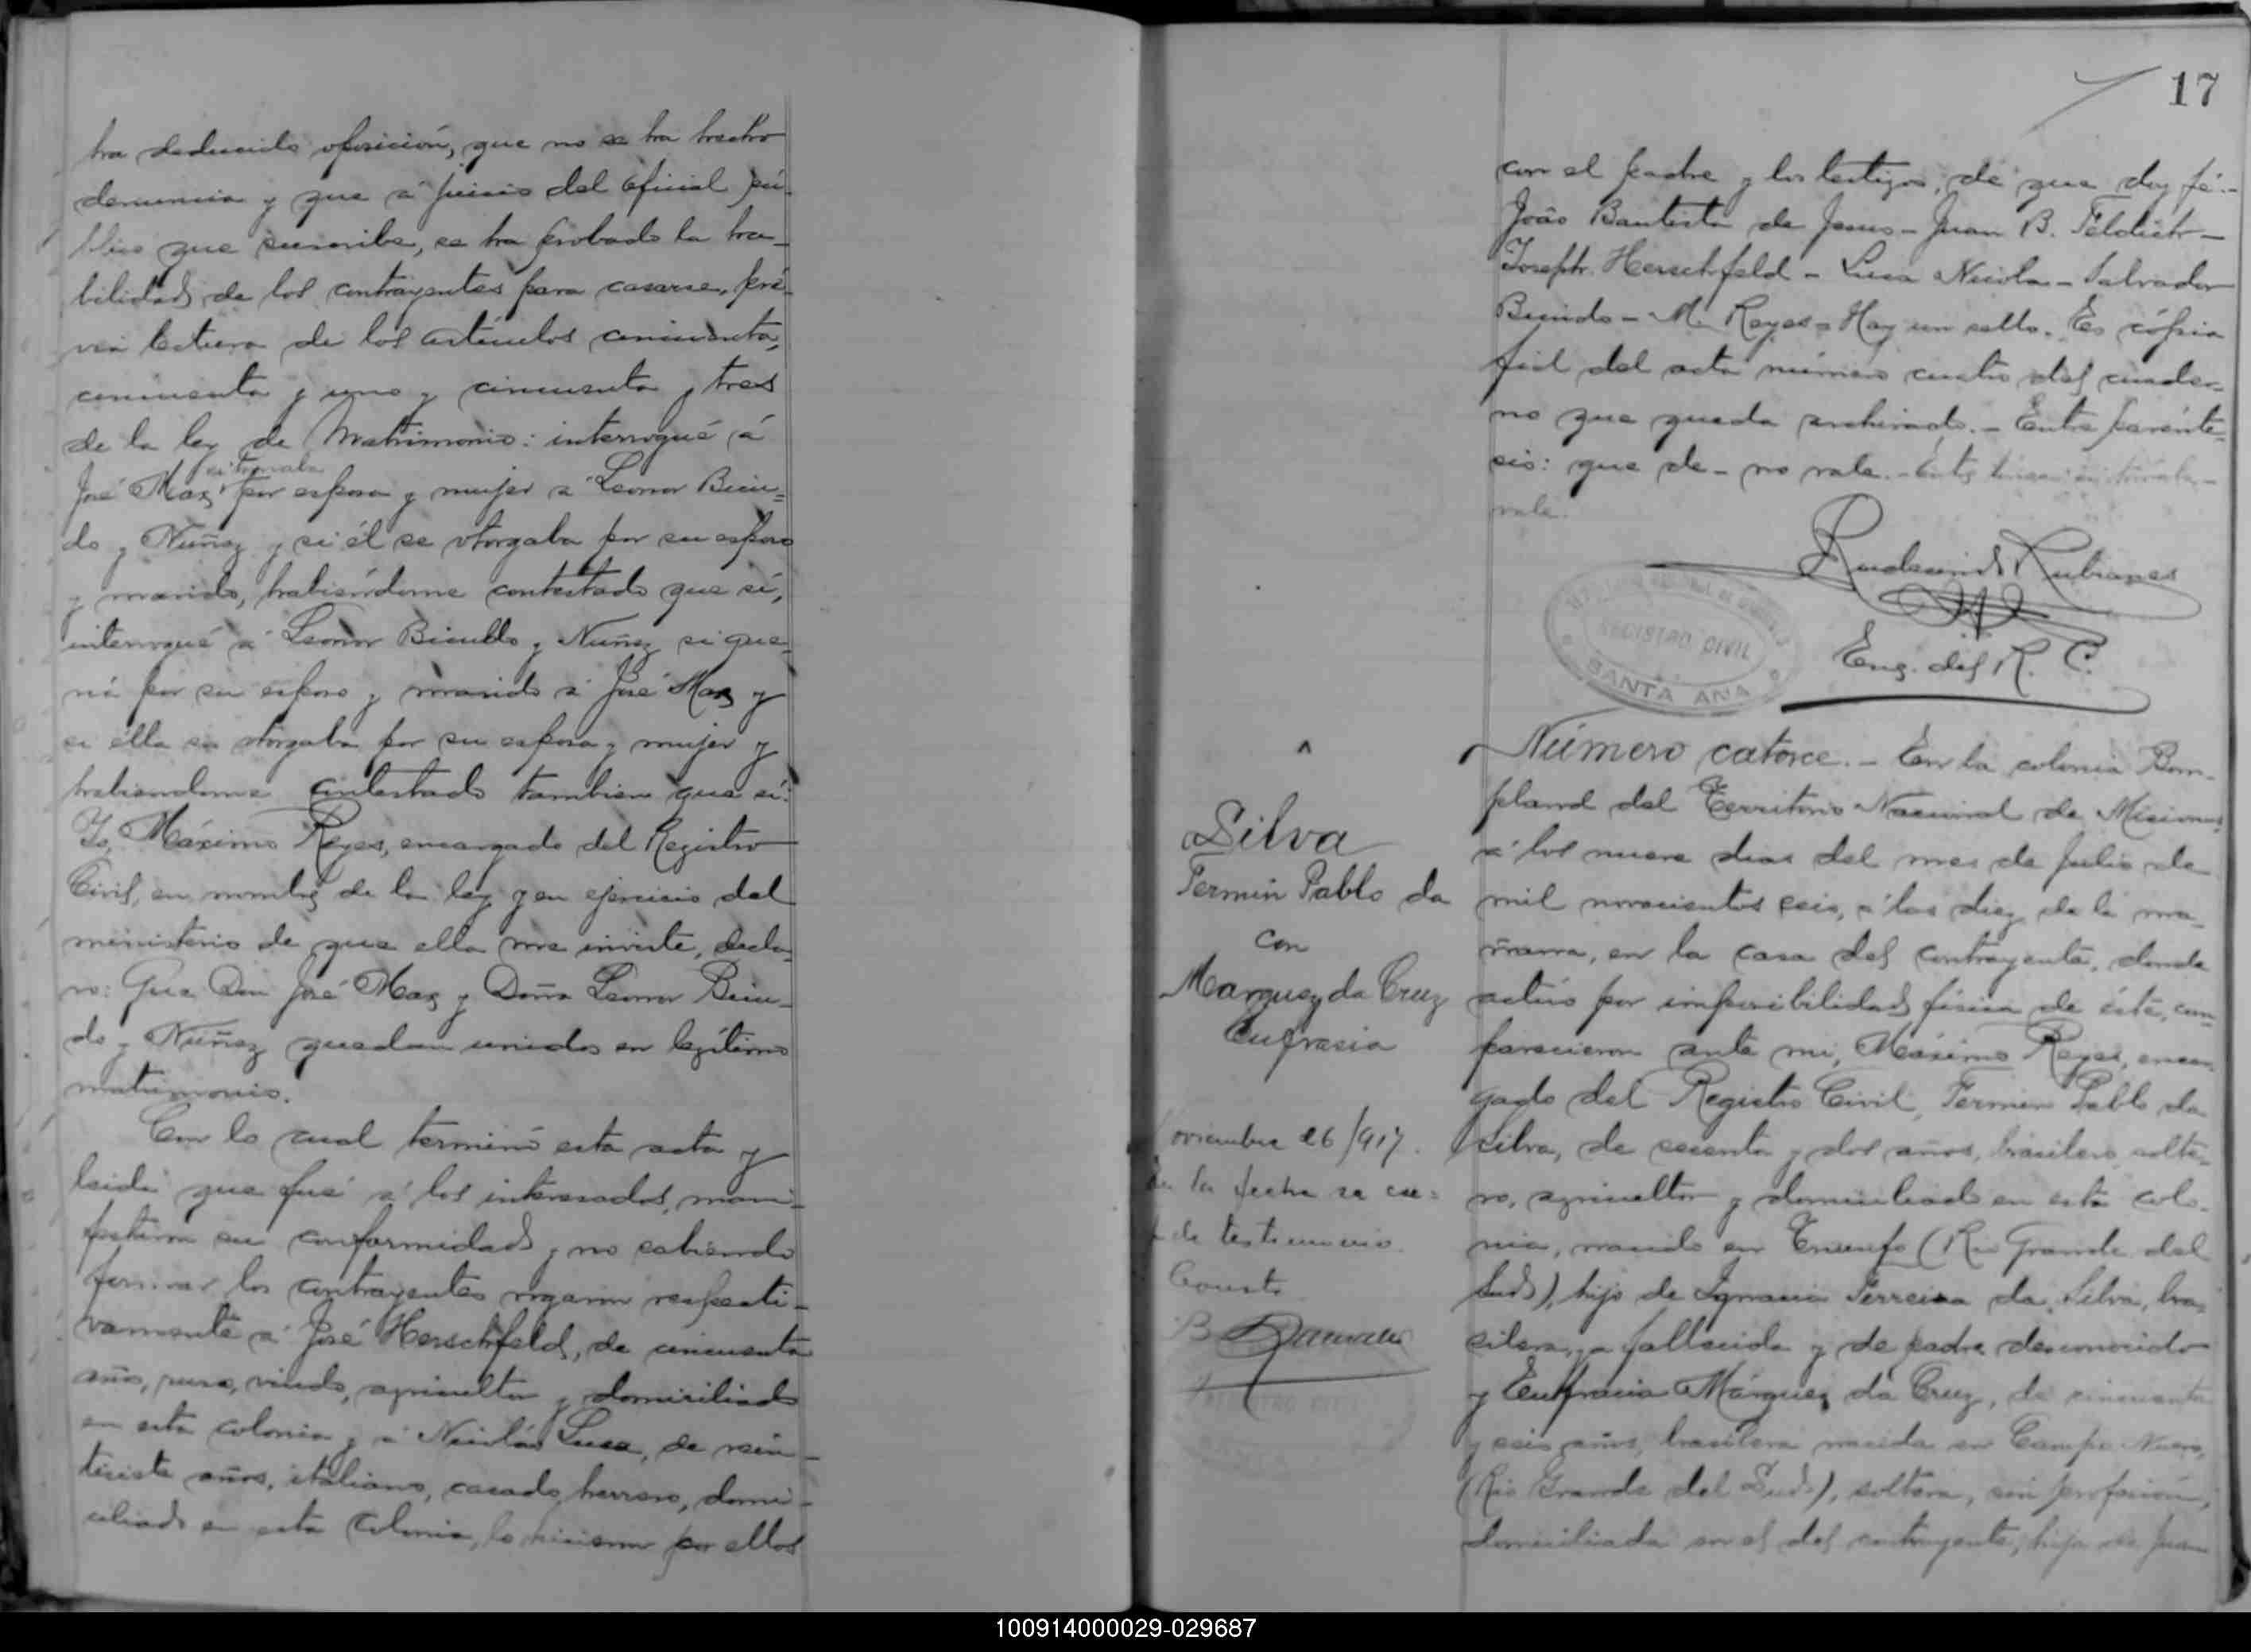 ha deducido oposición, que no se ha hecho
denuncia y que á juicio del oficial pú-
blico que suscribe, se ha probado la ha-
bilidad de los contrayentes para casarse, pré-
via lectura de los artículos cincuenta,
cincuenta y uno y cincuenta y tres
de la ley de Matrimonio: interrogué á
si tomaba
José Max por esposa y mujer a Leonor Bicu-
do y Nuñez y si él se otorgaba por su esposo
y marido, habiéndome contestado que sí,
interrogué á Leonor Bicudo y Nuñez si que-
ría por su esposo y marido á José Max y
si ella se otorgaba por su esposa y mujer y
habiendome contestado tambien que sí:
Yo, Máximo Reyes, encargado del Registro
Civil, en nombre de la ley y en ejercicio del
ministerio de que ella me inviste, decla-
ro: Que Don José Max y Doña Leonor Bicu-
do y Nuñez quedan unidos en legítimo
matrimonio.
Con lo cual terminó esta acta y
leida que fué á los interesados, mani-
festaron su conformidad y no sabiendo
firmar los contrayentes rogaron respecti-
vamente á José Herschfeld, de cincuenta
años, ruso, viudo, agricultor y domiciliado
en esta colonia y á Nicolás Luca, de vein-
tisiete años, italiano, casado, herrero, domi-
ciliado en esta Colonia, lo hicieron por ellos
17
con el padre y los testigos, de que doy fé.-
João Bautista de Jesus - Juan B. -
Joseph Herschfeld - Luca Nicola - Salvador
Bicudo - M. Reyes - Hay un sello. Es cópia
fiel del acta número cuatro del cuader-
no que queda archivado. - Entre parénte-
sis: que de - no vale. - Entre líneas: si tomaba -
vale.
Rudecindo Rubianes
Enc. del R. C.
REGISTRO CIVIL
SANTA ANA
Silva
Fermin Pablo da
con
Marquez da Cruz
Eufrasia
Noviembre 26/917.
En la fecha se
de testimonio.
Conste
REGISTRO CIVIL
Número catorce. - En la colonia Bom-
pland del Territorio Nacional de Misiones
á los nueve dias del mes de Julio de
mil novecientos seis, á las diez de la ma-
ñana, en la casa del contrayente, donde
actúo por imposibilidad física de éste, com-
parecieron ante mi, Máximo Reyes, encar-
gado del Registro Civil, Fermin Pablo da
Silva, de sesenta y dos años, brasilero, solte-
ro, agricultor y domiciliado en esta colo-
nia, nacido en (Rio Grande del
Sud), hijo de Ignacia Ferreira da Silva, bra-
silera, ya fallecida y de padre desconocido
y Eufracia Márquez da Cruz, de cincuenta
y seis años, brasilera nacida en Campo Nuevo,
(Rio Grande del Sud), soltera, sin profesión,
domiciliada en el del contrayente, hija de Juan
100914000029-029687